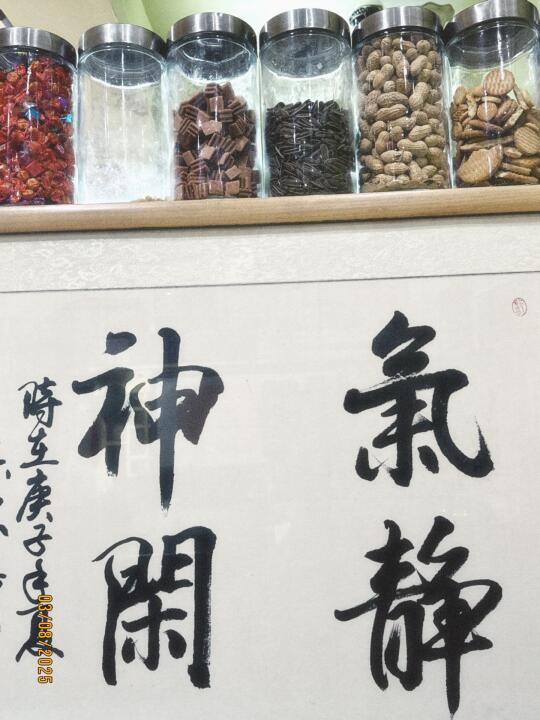 氣靜
神閑
時在庚子年夏
03/08/2025